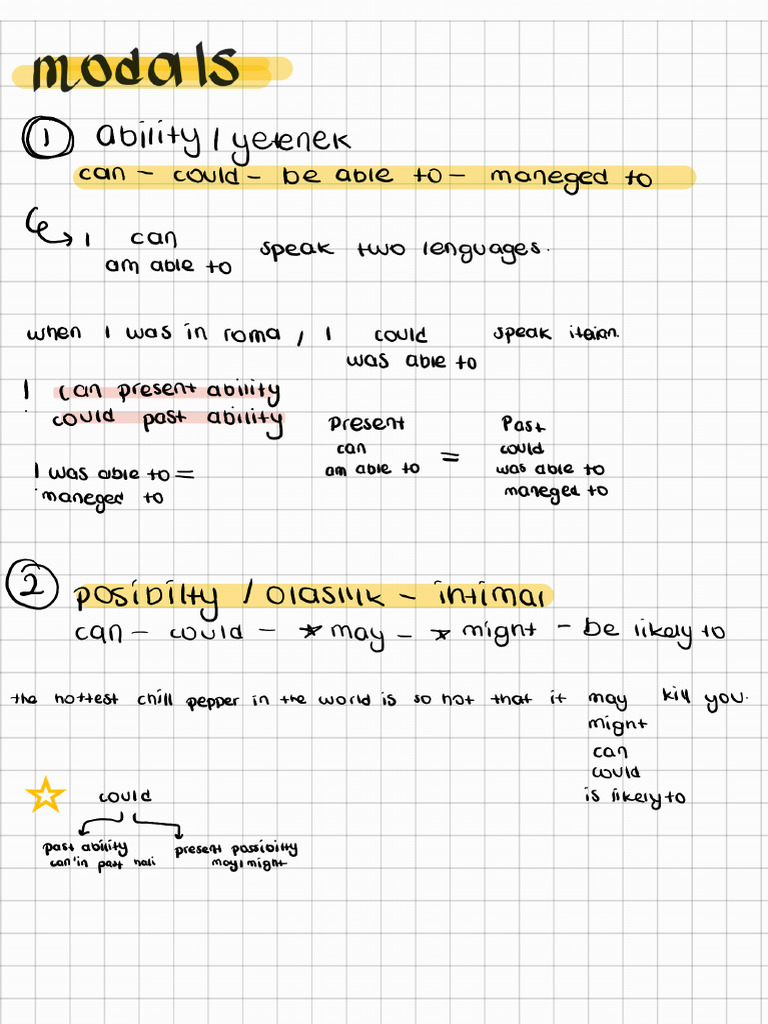 modals
1 ability / yetenek
can - could - be able to - maneged to
I can speak two lenguages.
am able to
when I was in roma, I could speak itaian.
was able to
I can present ability
could past ability
Present Past
can = could
am able to was able to
maneged to
I was able to =
maneged to
2 posibilty / olasılık - ihtimal
can - could - *may - *might - be likely to
the hottest chill pepper in the world is so hot that it may kill you.
might
can
could
is likely to
could
past ability present possibilty
can'in past hali may/might